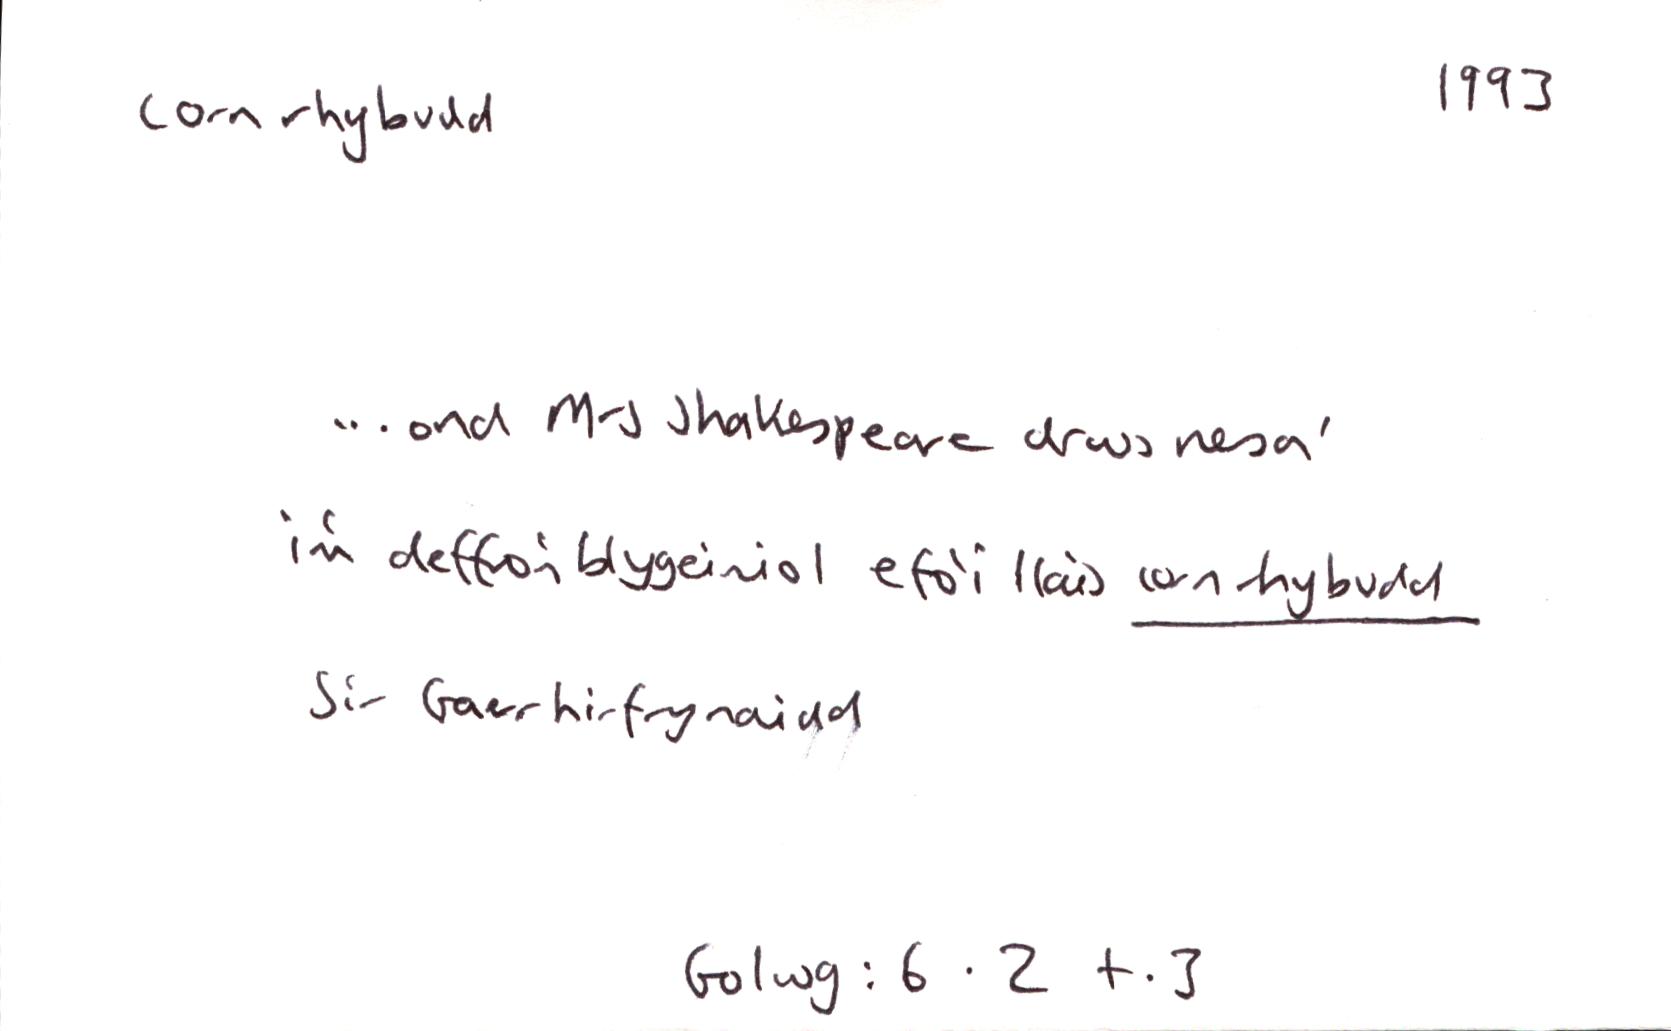 corn rhybudd
1993
... ond Mrs Shakespeare drws nesa'
i'n deffro'n blygeiniol efo'i llais corn rhybudd
Sir Gaerhirfrynaidd
Golwg: 6 . 2 t.3